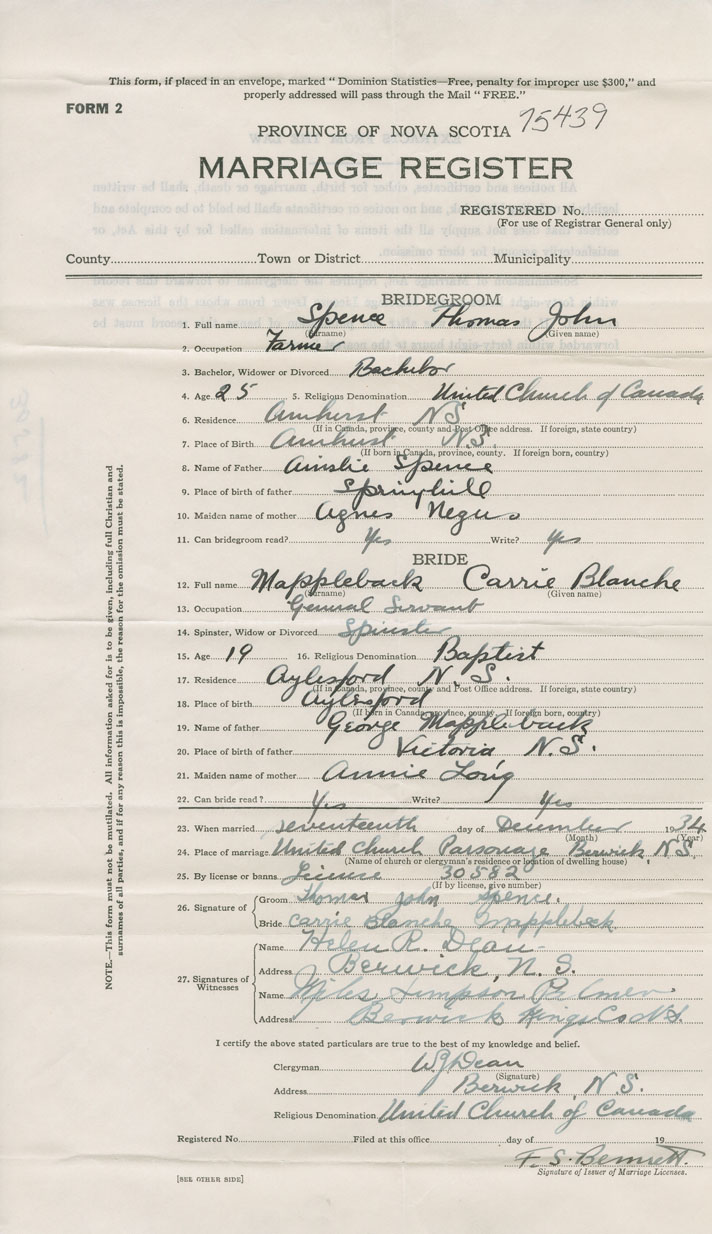 This form, if placed in an envelope, marked “ Dominion Statistics—Free, penalty for improper use $300,” and
properly addressed will pass through the Mail “ FREE.”
FORM 2
75439
PROVINCE OF NOVA SCOTIA
MARRIAGE REGISTER
REGISTERED No.
(For use of Registrar General only)
County Town or District Municipality
BRIDEGROOM
1. Full name Spence Thomas John
(Surname) (Given name)
2. Occupation Farmer
3. Bachelor, Widower or Divorced Bachelor
4. Age 25 5. Religious Denomination United Church of Canada
6. Residence Amherst NS
(If in Canada, province, county and Post Office address. If foreign, state country)
7. Place of Birth Amherst N.S.
(If born in Canada, province, county. If foreign born, country)
8. Name of Father Ainslie Spence
9. Place of birth of father Springhill
10. Maiden name of mother Agnes Negus
11. Can bridegroom read? Yes Write? Yes
BRIDE
12. Full name Mappleback Carrie Blanche
(Surname) (Given name)
13. Occupation General Servant
14. Spinster, Widow or Divorced Spinster
15. Age 19 16. Religious Denomination Baptist
17. Residence Aylesford N.S.
(If in Canada, province, county and Post Office address. If foreign, state country)
18. Place of birth Aylesford
(If born in Canada, province, county. If foreign born, country)
19. Name of father George Mappleback
20. Place of birth of father Victoria N.S.
21. Maiden name of mother Annie Long
22. Can bride read? Yes Write? Yes
23. When married seventeenth day of December 1934
(Month) (Year)
24. Place of marriage United Church Parsonage Berwick, N.S.
(Name of church or clergyman's residence or location of dwelling house)
25. By license or banns License 30582
(If by license, give number)
26. Signature of
Groom Thomas John Spence.
Bride Carrie Blanche Mapplebeck
27. Signatures of Witnesses
Name Helen R. Dean
Address Berwick, N.S.
Name Simpson Palmer
Address Berwick Kings Co N.S.
I certify the above stated particulars are true to the best of my knowledge and belief.
Clergyman W J Dean
(Signature)
Address Berwick, N.S.
Religious Denomination United Church of Canada
Registered No. Filed at this office day of 19
F. S. Bennett.
Signature of Issuer of Marriage Licenses.
[SEE OTHER SIDE]
NOTE.—This form must not be mutilated. All information asked for is to be given, including full Christian and
surnames of all parties, and if for any reason this is impossible, the reason for the omission must be stated.